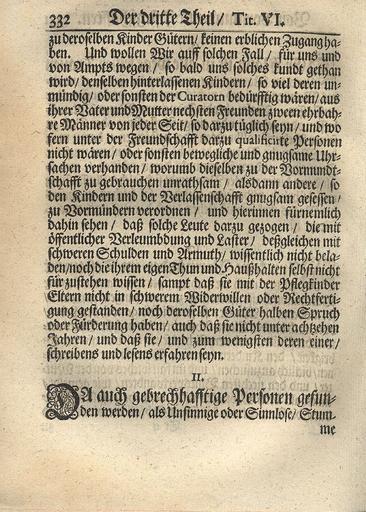 332 Der dritte Theil/ Tit. VI.
zu deroselben Kinder Gütern/ keinen erblichen Zugang ha-
ben. Und wollen Wir auff solchen Fall/ für uns und
von Ampts wegen/ so bald uns solches kundt gethan
wird/ denselben hinterlassenen Kindern/ so viel deren un-
mündig/ oder sonsten der Curatorn bedürfftig wären/ aus
ihrer Vater und Mutter nechsten Freunden zween ehrbah-
re Männer von jeder Seit/ so darzu tüglich seyn/ und wo
fern unter der Freundschafft darzu qualificirte Personen
nicht wären/ oder sonsten bewegliche und gnugsame Uhr-
sachen verhanden/ worumb dieselben zu der Vormundt-
schafft zu gebrauchen unrathsam/ alsdann andere/ so
den Kindern und der Verlassenschafft gnugsam gesessen/
zu Vormündern verordnen/ und hierinnen fürnemlich
dahin sehen/ daß solche Leute darzu gezogen/ die mit
öffentlicher Verleumbdung und Laster/ deßgleichen mit
schweren Schulden und Armuth/ wissentlich nicht bela-
den/ noch die ihrem eigen Thun und Haußhalten selbst nicht
für zustehen wissen/ sampt daß sie mit der Pflegkinder
Eltern nicht in schwerem Widerwillen oder Rechtferti-
gung gestanden/ noch deroselben Güter halben Spruch
oder Förderung haben/ auch daß sie nicht unter achtzehen
Jahren/ und daß sie/ und zum wenigsten deren einer/
schreibens und lesens erfahren seyn.
II.
DA auch gebrechhafftige Personen gefun-
den werden/ als Unsinnige oder Sinnlose/ Stum-
me